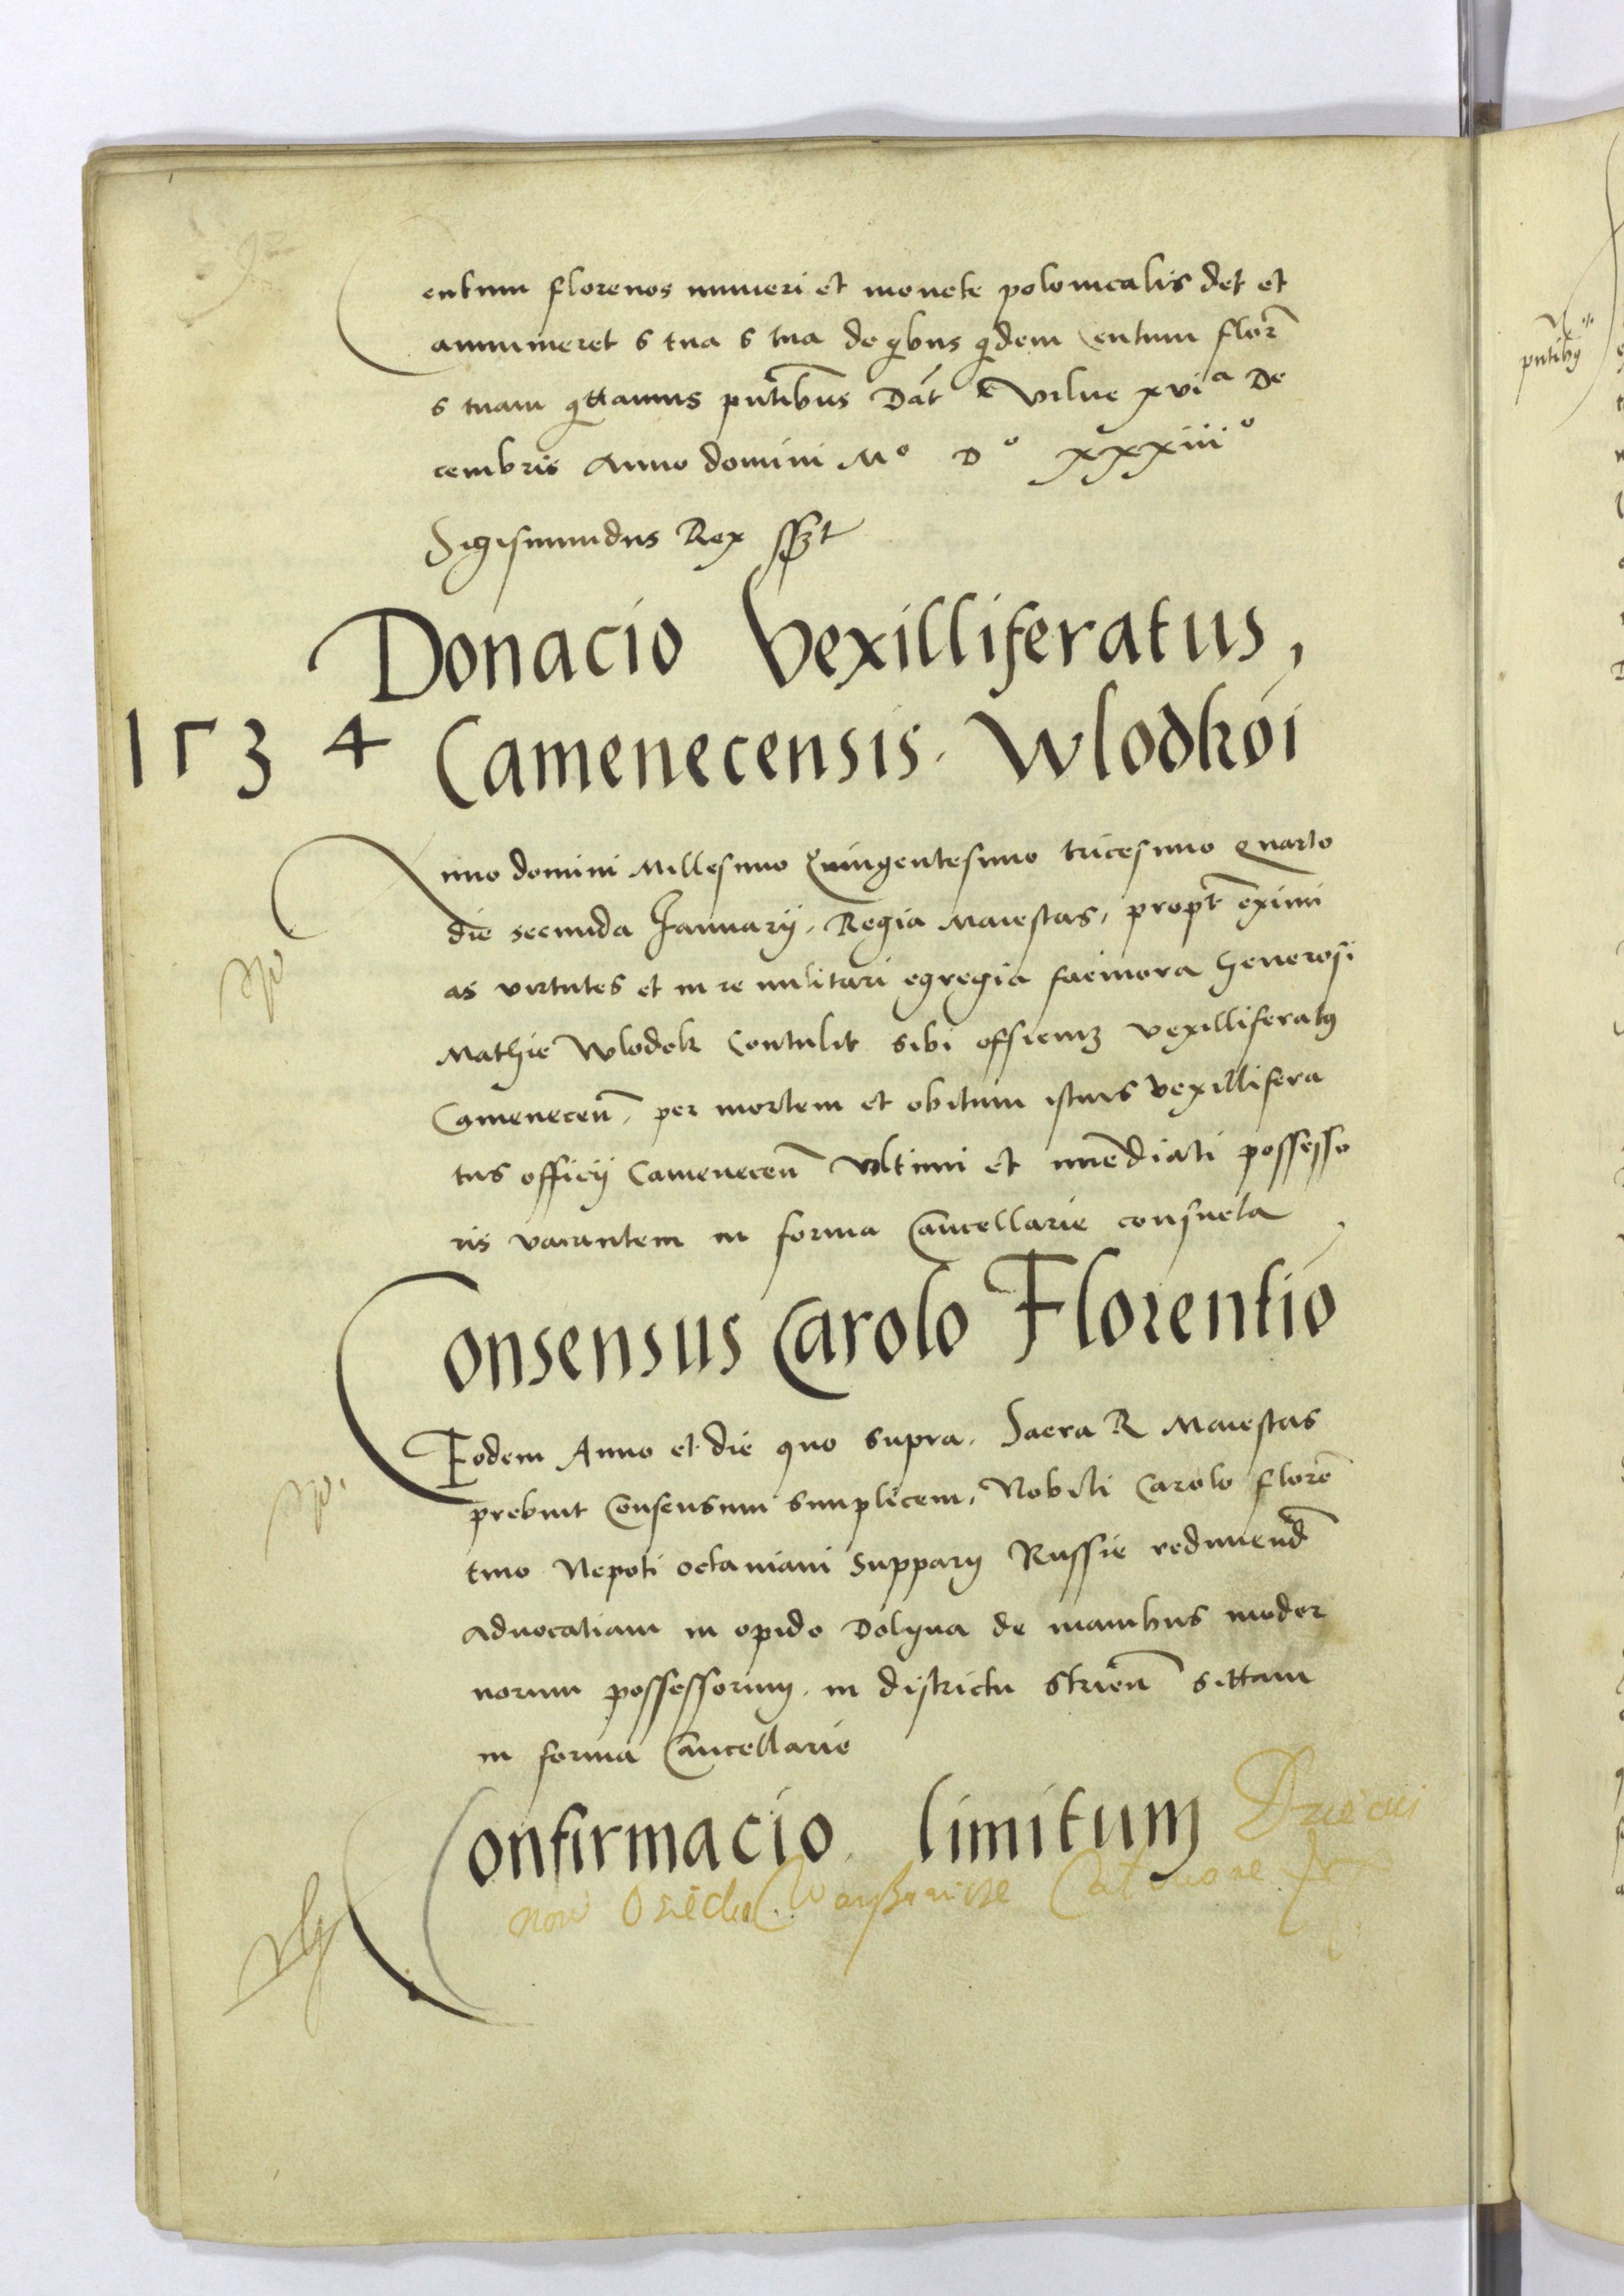 entum florenos numeri et monete polonicalis det et
annumeret s tua s tua de qbus qdem Centum florē
s tuam qttamus pntibus Dat Vilne xvia De
cembris Anno domini Mo Do xxxiiio
Sigismundus Rex sszt
Donacio Vexilliferatus,
1534 Camenecensis. Wlodkoi
nno domini Millesimo Quingentesimo tricesimo quarto
die secunda Januarij. Regia Maiestas, propt eximi
as virtutes et in re militari egregia facinora Generosi
Mathie Wlodek Contulit sibi officium vexilliferatus
Cameneceñ. per mortem et obitum istius vexillifera
tus officij Cameneceñ Vltimi et immediati possesso
ris vacantem in forma Cancellarie consueta
Consensus Carolo Florentio
Eodem Anno et die quo supra. Sacra R Maiestas
prebuit Consensum simplicem, Nobili Carolo florē
tino Nepoti octaviani Supparij Russie redimend
advocatiam in opido Dolyna de manibus moder
norum possessorum, in districtu Strieñ sittam
in forma Cancellarie
Confirmacio limitum